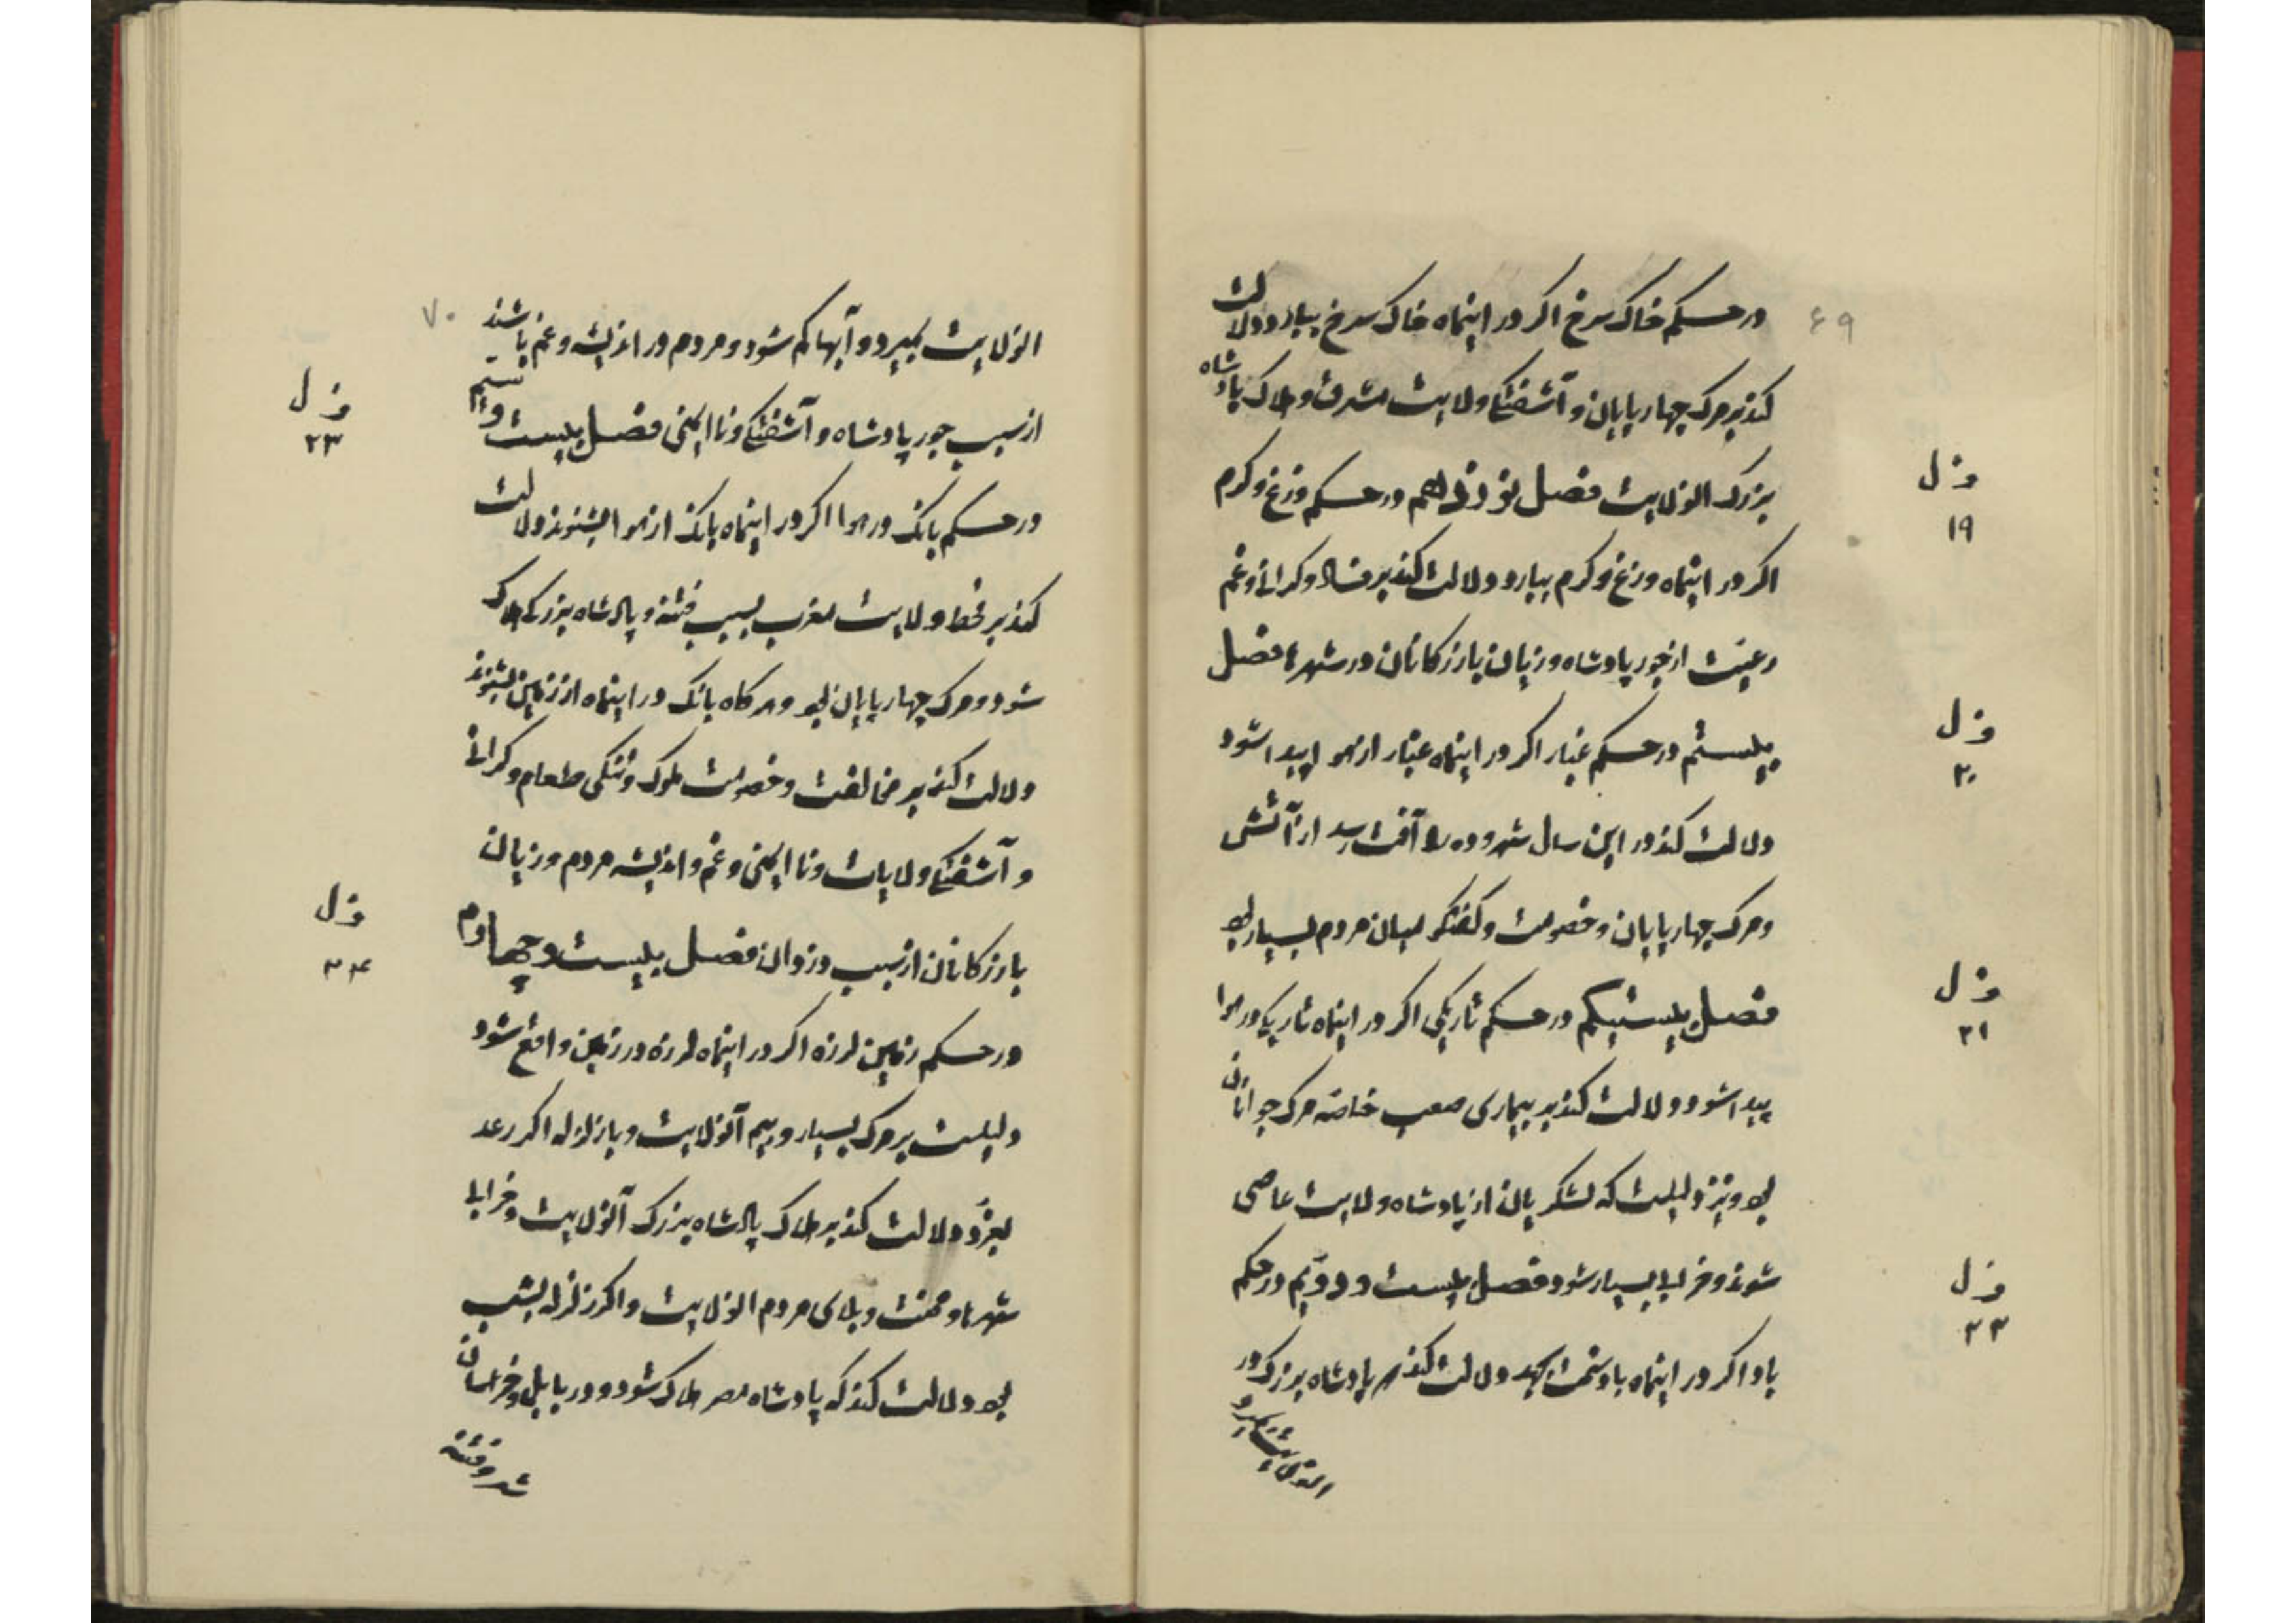 ۶۹
در حکم خاک سرخ اکر در اینماه خاک سرخ ببارد دلالت
کند بر مرک چهارپایان و آشفتکی ولایت مشرق و هلاک پادشاه
بزرک انولایت فصل نوزدهم در حکم وزغ و کرم
ف ل
۱۹
اکر در اینماه وزغ و کرم ببارد دلالت کند بر فساد و کرانی و غم
رعیت از جور پادشاه و زیان بازرکانان در شهرها فصل
بیستم در حکم غبار اکر در اینماه غبار از هوا پیدا شود
ف ل
۲۰
دلالت کند در این سال شهر و ده را آفت رسد از آتش
و مرک چهارپایان و خصومت و کفتکو میان مردم بسیار بود
فصل بیستیکم در حکم تاریکی اکر در اینماه تاریکی در هوا
ف ل
۲۱
پیدا شود دلالت کند بر بیماری صعب خاصه مرک جوانان
بود و نیز دلیلست که لشکریان از پادشاه ولایت عاصی
شوند و خرابی بسیار شود فصل بیست و دویم در حکم
ف ل
۲۲
باد اکر در اینماه باد سخت بجهد دلالت کند که پادشاه بزرک در
انولایت بمیرد
۷۰
انولایت بمیرد و آبها کم شود و مردم در اندیشه و غم باشند
از سبب جور پادشاه و آشفتکی و ناایمنی فصل بیست و سیم
ف ل
۲۳
در حکم بانک در هوا اکر در اینماه بانک از هوا بشنوند دلالت
کند بر قحط ولایت مغرب بسبب فتنه و پادشاه بزرکی هلاک
شود و مرک چهارپایان بود و هرکاه بانک در اینماه از زمین بشنوند
دلالت کند بر مخالفت و خصومت ملوک و تنکی طعام و کرانی
و آشفتکی ولایات و ناایمنی و غم و اندیشه مردم و زیان
بازرکانان از سبب دزدان فصل بیست و چهارم
ف ل
۲۴
در حکم زمین لرزه اکر در اینماه لرزه در زمین واقع شود
دلیلست بر مرک بسیار و بیم آنولایت و با زلزله اکر رعد
بغرد دلالت کند بر هلاک پادشاه بزرک آنولایت و خرابی
شهرها و محنت و بلای مردم انولایت و اکر زلزله بشب
بود دلالت کند که پادشاه مصر هلاک شود و در بابل و خراسان
شر و فتنه